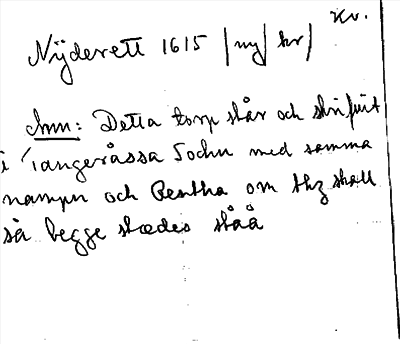 Kv.
Nÿderett 1615 /ny/ kr/
Anm: Detta torp står och skrifuit
i Tangeråssa Sochn med samma
nampn och Rentha om thz skall
så begge stædes ståå